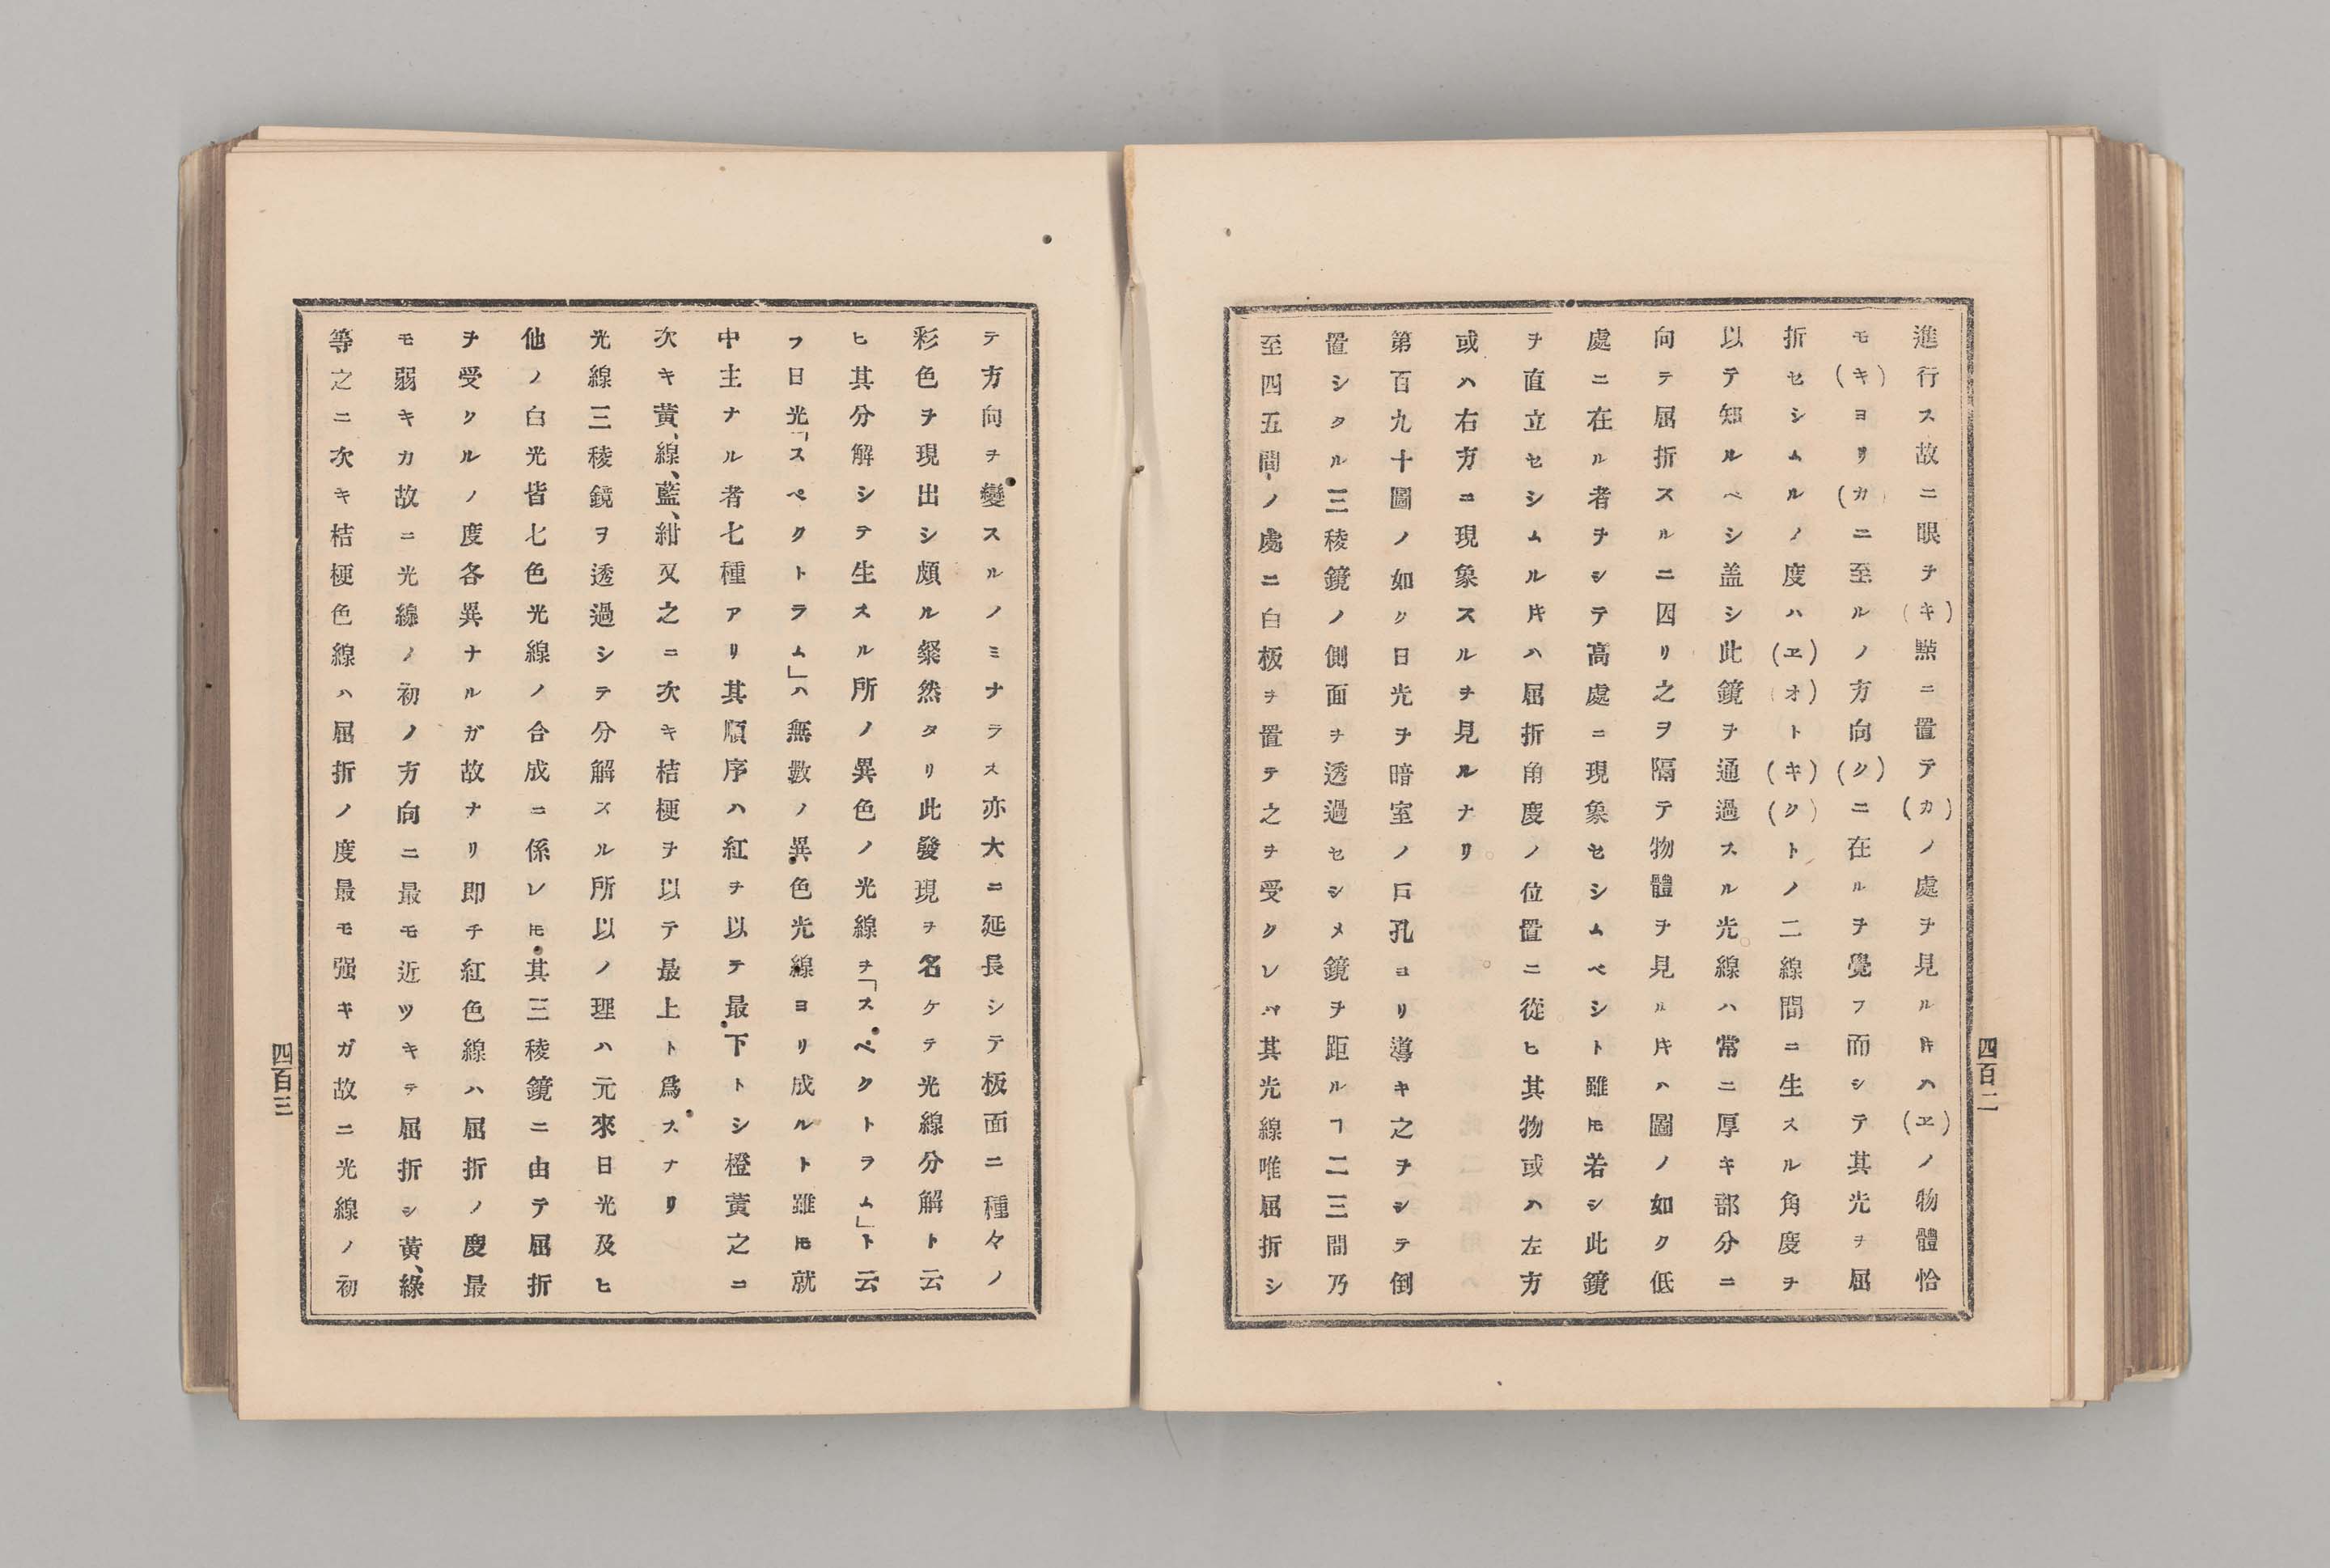 進行ス故ニ眼ヲ(キ)㸃ニ置テ(カ)ノ處ヲ見ル𪜈ハ(ヱ)ノ物體恰
モ(キ)ヨリ(カ)ニ至ルノ方向(ク)ニ在ルヲ覺フ而シテ其光ヲ屈
折セシムルノ度ハ(ヱ)(オ)ト(キ)(ク)トノ二線間ニ生スル角度ヲ
以テ知ルベシ盖シ此鏡ヲ通過スル光線ハ常ニ厚キ部分ニ
向テ屈折スルニ因リ之ヲ隔テ物體ヲ見ル𪜈ハ圖ノ如ク低
處ニ在ル者ヲシテ高處ニ現象セシムベシト雖𪜈若シ此鏡
ヲ直立セシムル𪜈ハ屈折角度ノ位置ニ從ヒ其物或ハ左方
或ハ右方ニ現象スルヲ見ルナリ
第百九十圖ノ如ク日光ヲ暗室ノ戸孔ヨリ導キ之ヲシテ倒
置シタル三稜鏡ノ側面ヲ透過セシメ鏡ヲ距ルヿ二三間乃
至四五間ノ處ニ白板ヲ置テ之ヲ受クレバ其光線唯屈折シ
四百二
テ方向ヲ變スルノミナラス亦大ニ延長シテ板面ニ種々ノ
彩色ヲ現出シ頗ル粲然タリ此發現ヲ名ケテ光線分解ト云
ヒ其分解シテ生スル所ノ異色ノ光線ヲ「スペクトラム」ト云
フ日光「スペクトラム」ハ無數ノ異色光線ヨリ成ルト雖𪜈就
中主ナル者七種アリ其順序ハ紅ヲ以テ最下トシ橙黃之ニ
次キ黃、線、藍、紺又之ニ次キ桔梗ヲ以テ最上ト爲スナリ
光線三稜鏡ヲ透過シテ分解スル所以ノ理ハ元來日光及ヒ
他ノ白光皆七色光線ノ合成ニ係レ𪜈其三稜鏡ニ由テ屈折
ヲ受クルノ度各異ナルガ故ナリ即チ紅色線ハ屈折ノ度最
モ弱キカ故ニ光線ノ初ノ方向ニ最モ近ツキテ屈折シ黃、綠
等之ニ次キ桔梗色線ハ屈折ノ度最モ强キガ故ニ光線ノ初
四百三